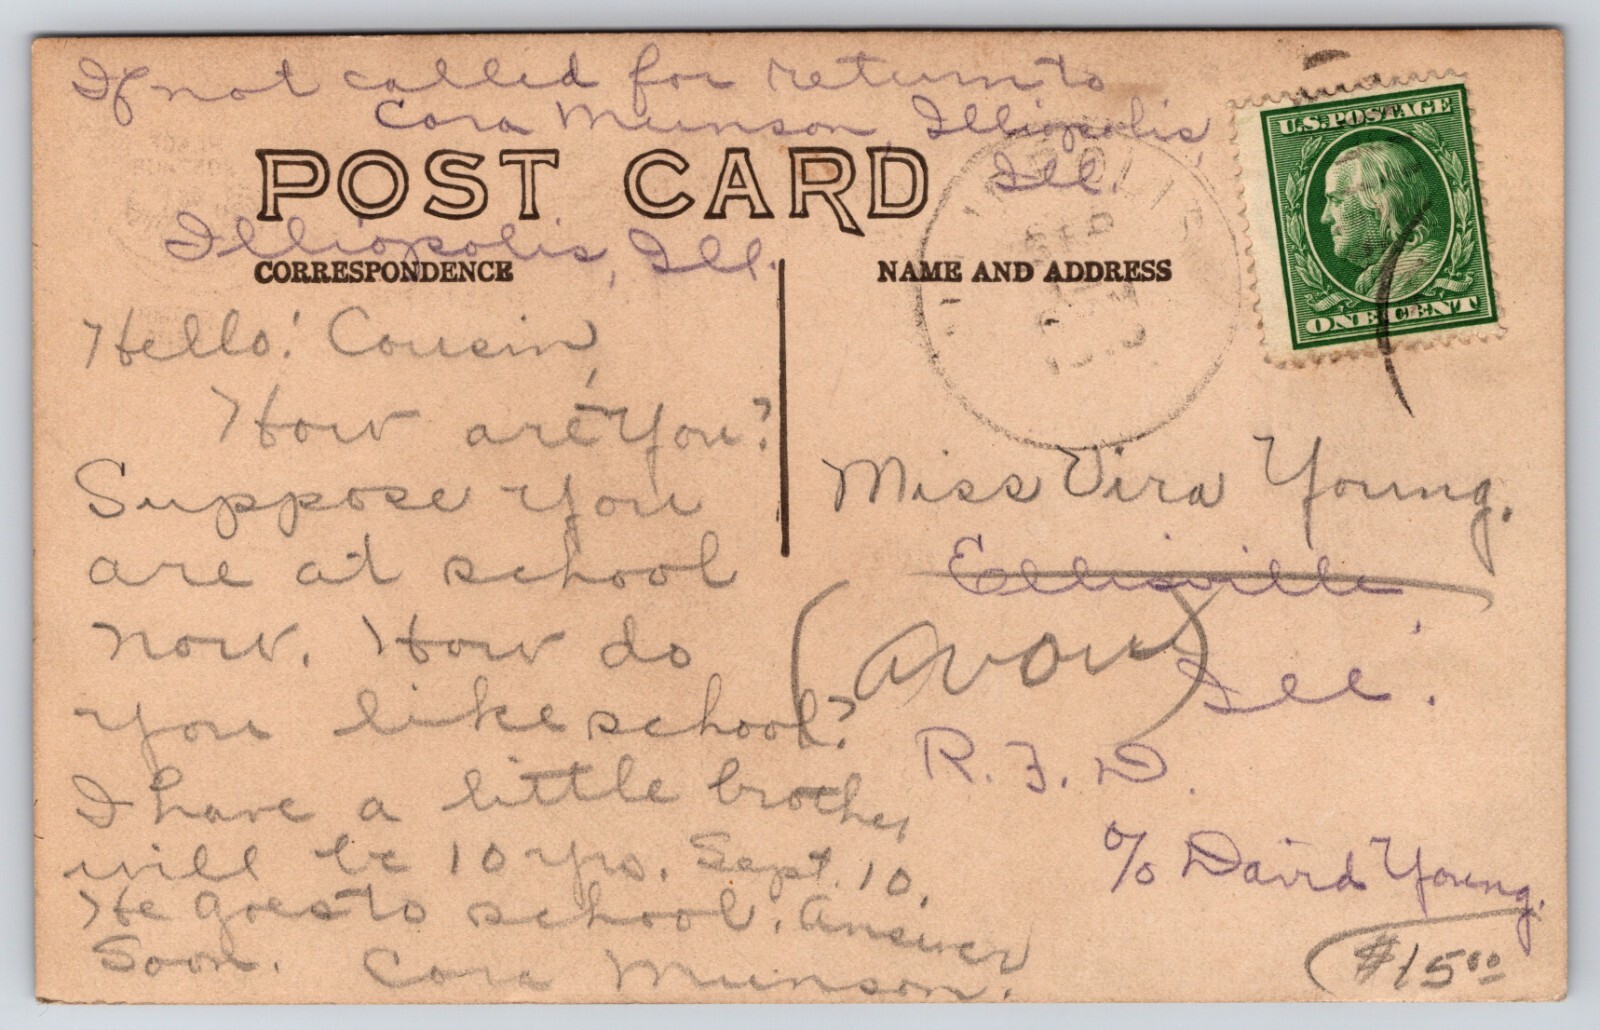 If not called for return to
Cora Munson, Illiopolis,
Ill.
POST CARD
Illiopolis, Ill.
CORRESPONDENCE
Hello! Cousin,
How are you?
Suppose you
are at school
now. How do
you like school?
I have a little brother
will be 10 yrs. Sept. 10.
He goes to school. Answer
Soon. Cora Munson.
NAME AND ADDRESS
U.S. POSTAGE
ONE CENT
SEP
Miss Vira Young.
Ellisville
(Avon)
Ill.
R. F. D.
c/o David Young.
$15.00